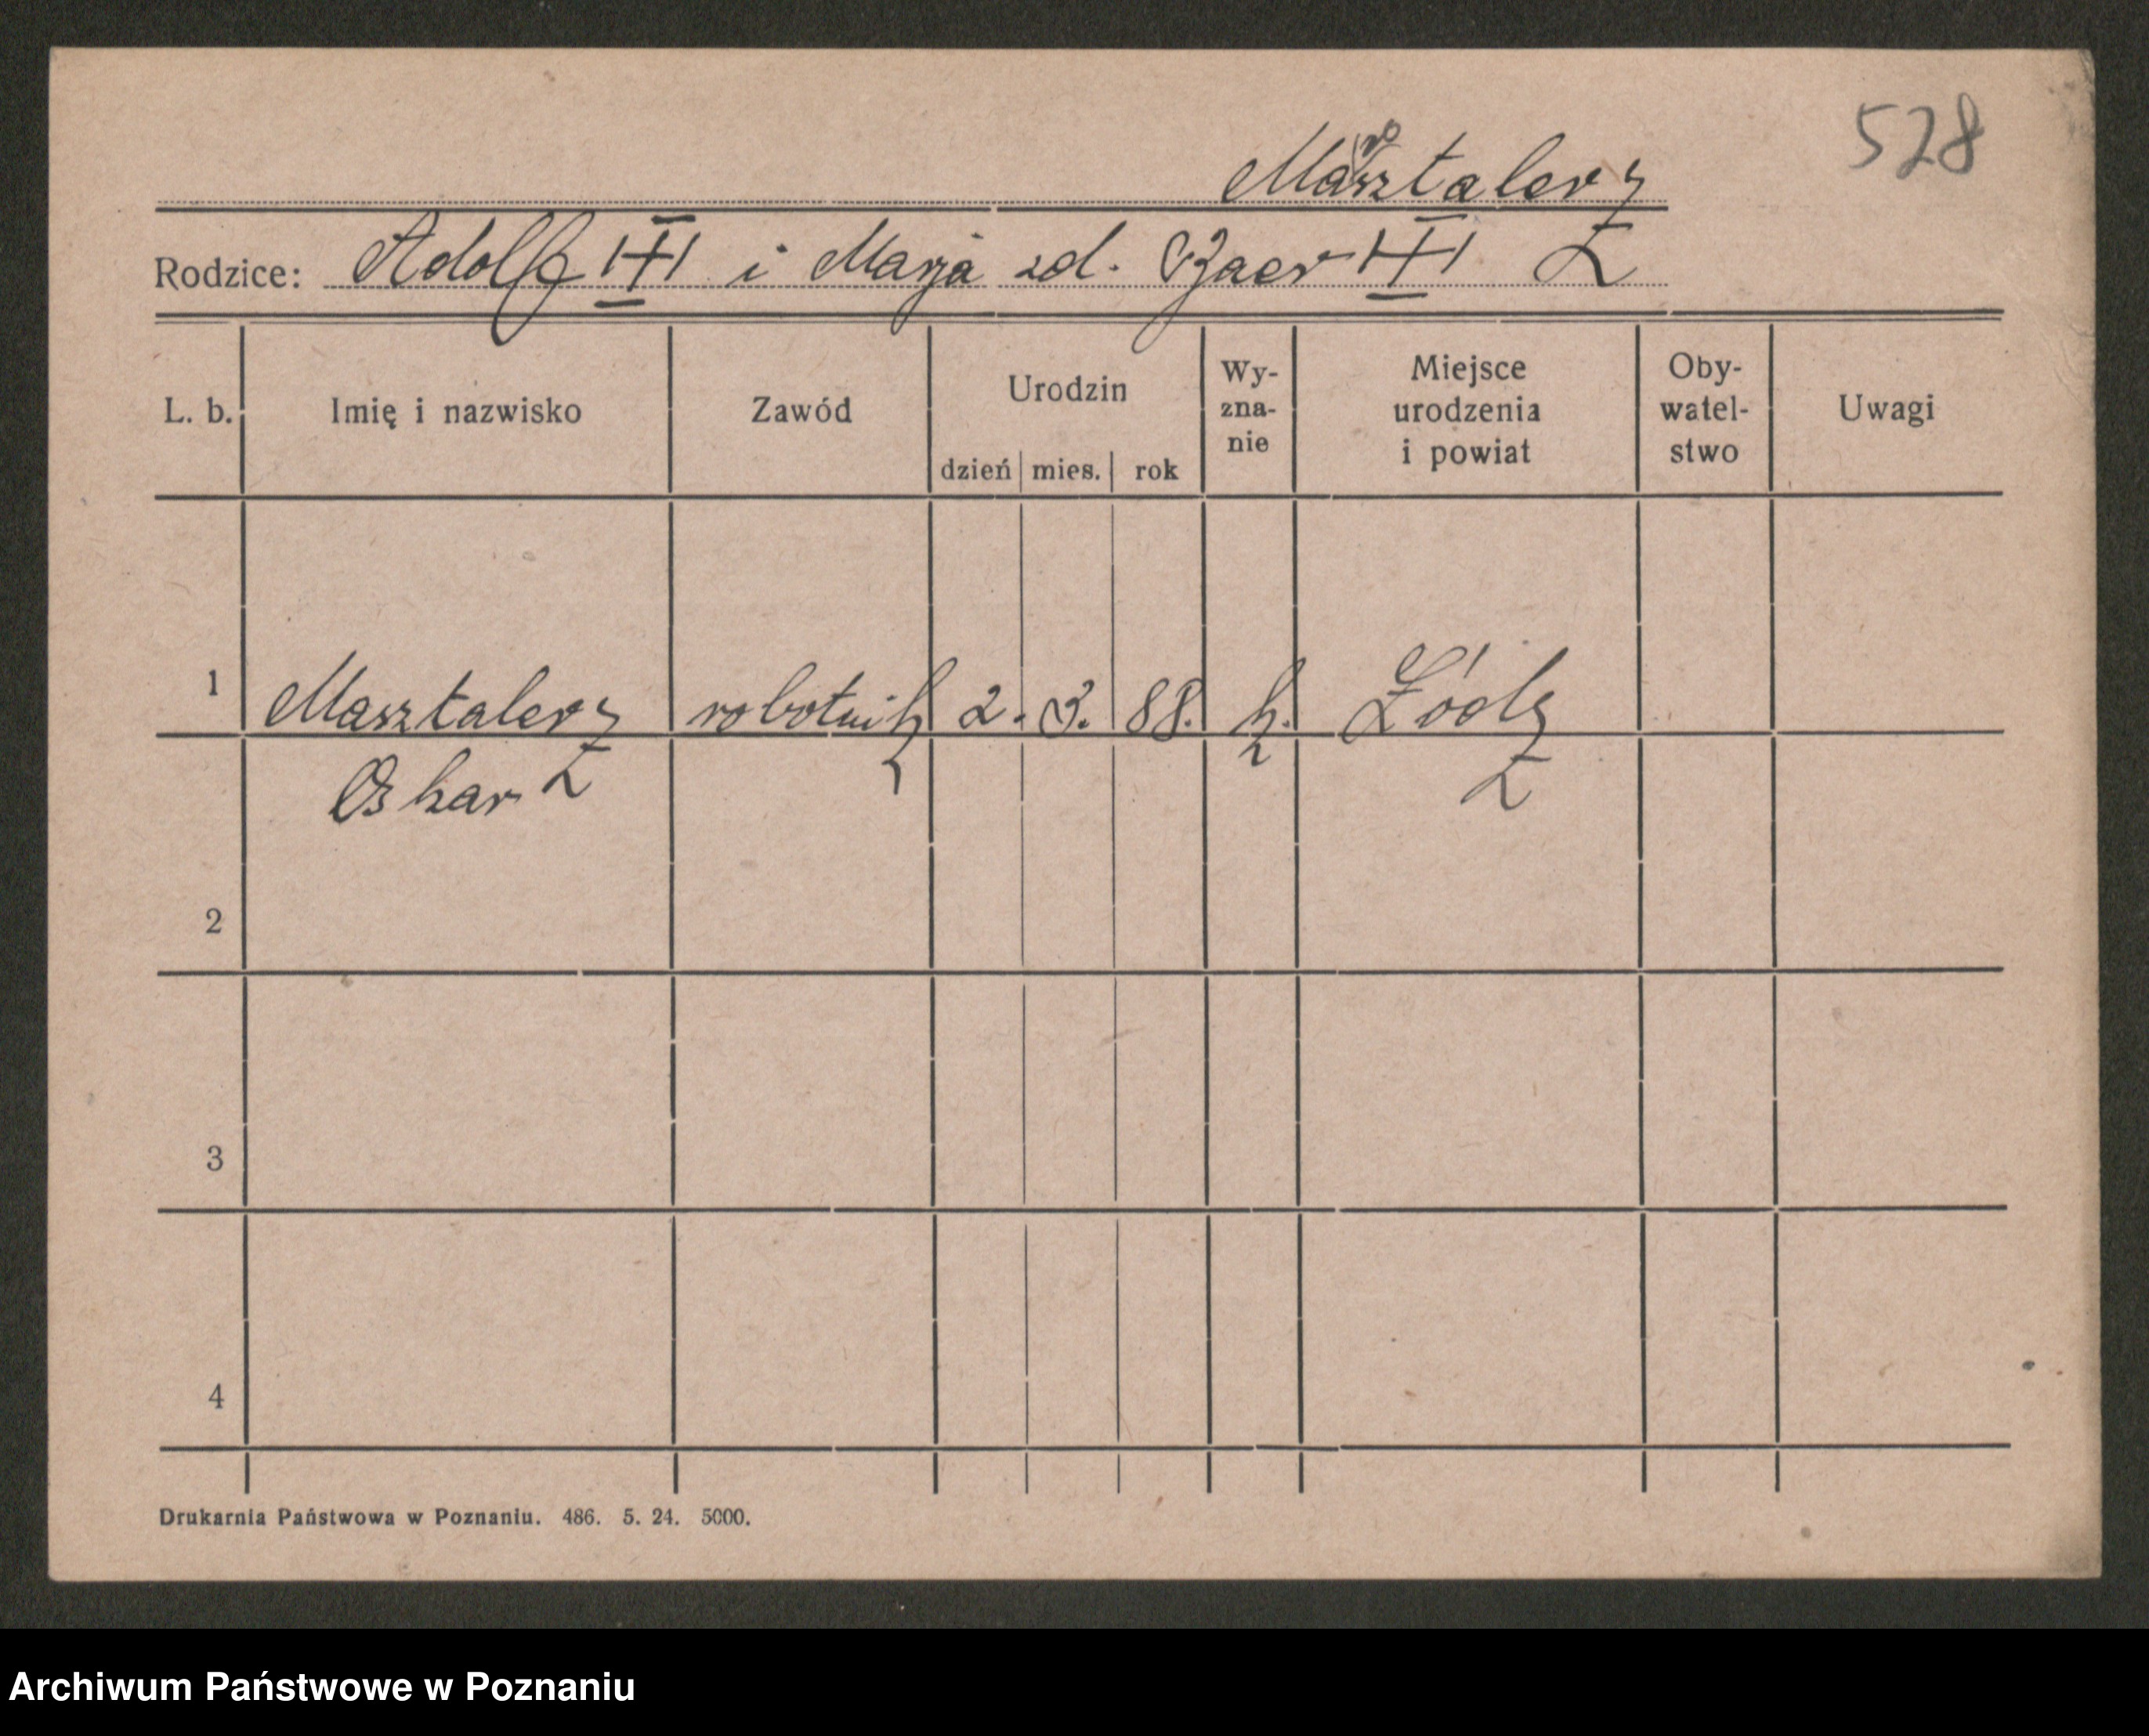 528
Masztalerz
Rodzice: Adolf i Marja zd. Baer
L. b. Imię i nazwisko Zawód Urodzin dzień mies. rok Wy-zna-nie Miejsce urodzenia i powiat Oby-watel-stwo Uwagi
1 Masztalerz robotnik 2. 3. 88. k. Łódź
Oskar
2
3
4
Drukarnia Państwowa w Poznaniu. 486. 5. 24. 5000.
Archiwum Państwowe w Poznaniu